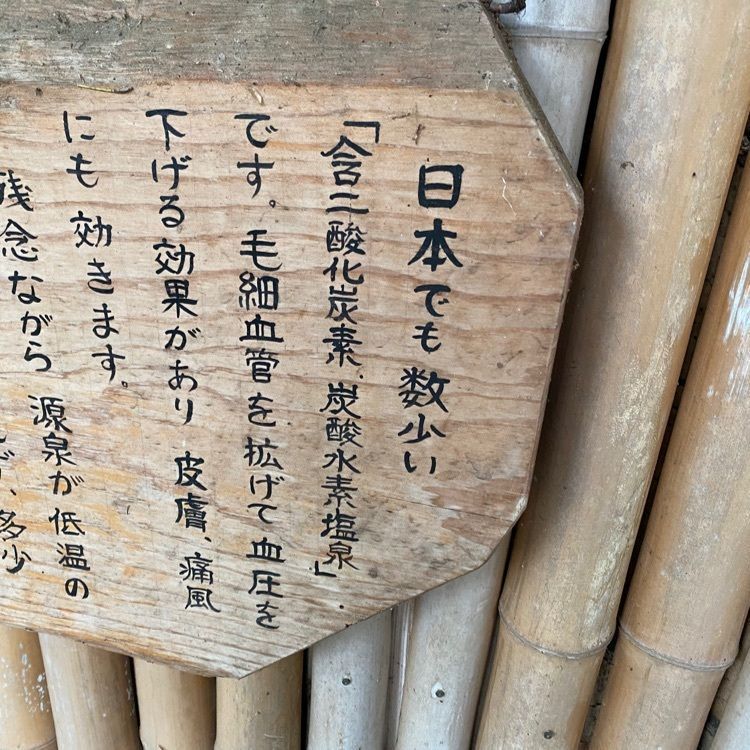 日本でも数少い
「含二酸化炭素、炭酸水素塩泉」
です。毛細血管を拡げて血圧を
下げる効果があり 皮膚、痛風
にも効きます。
残念ながら 源泉が低温の
が、多少